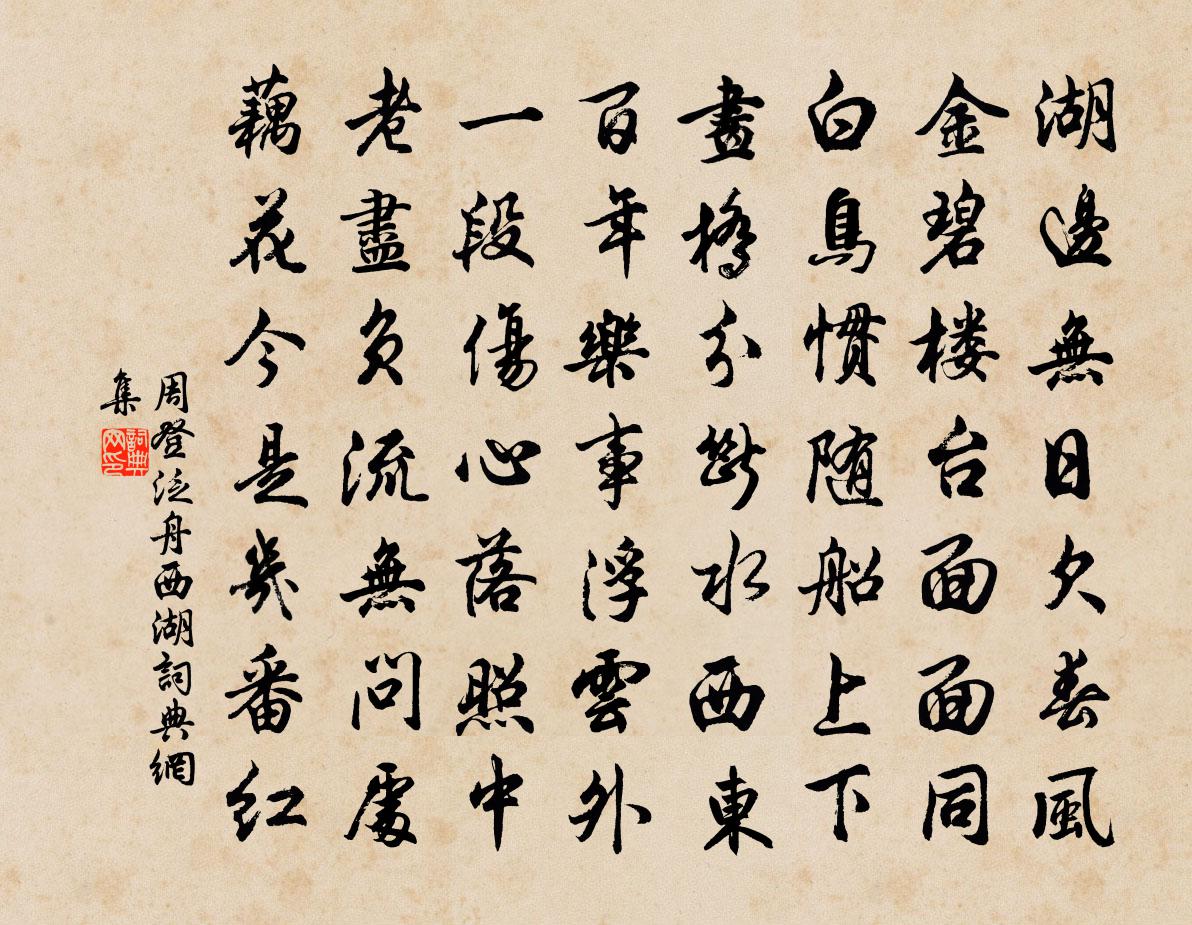 湖邊無日欠春風
金碧楼台面面同
白鳥慣随船上下
畫橋分斷水西東
百年樂事浮雲外
一段傷心落照中
老盡負流無問處
藕花今是幾番紅
周登泛舟西湖詞典網
集
詞典
网印